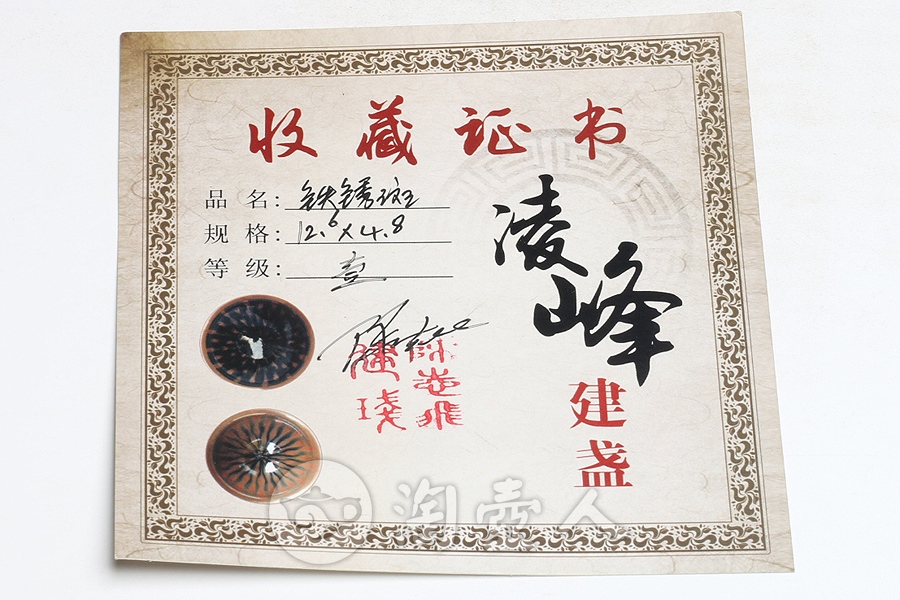 收藏证书
品名：铁锈斑
规格：12.6×4.8
等级：壹
凌峰
建盏
淘壶人